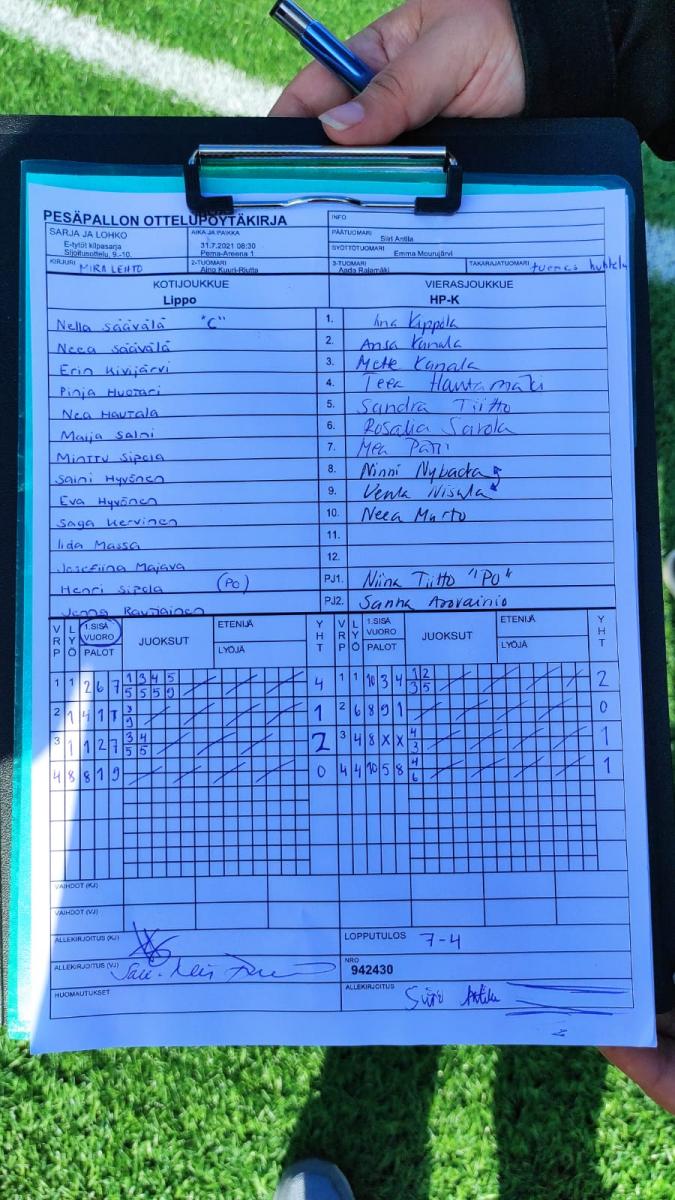 PESÄPALLON OTTELUPÖYTÄKIRJA
INFO
SARJA JA LOHKO
E-tytöt kilpasarja
Sijoitusottelu, 9.-10.
AIKA JA PAIKKA
31.7.2021 08:30
Pema-Areena 1
PÄÄTUOMARI
Siiri Antila
SYÖTTÖTUOMARI
Emma Mourujärvi
KIRJURI MIRA LEHTO
2-TUOMARI
Aino Kuuri-Riutta
3-TUOMARI
Aada Ralamäki
TAKARAJATUOMARI
KOTIJOUKKUE
Lippo
VIERASJOUKKUE
HP-K
Nella Säävälä "C"
1. Iina Kippola
Neea Säävälä
2. Ansa Kanala
Erin Kivijärvi
3. Mette Kanala
Pinja Huotari
4. Teea Hautamäki
Nea Hautala
5. Sandra Tiitto
Maija Salmi
6. Rosalia Sarola
Minttu Sipola
7. Mea
Saini Hyvönen
8. Ninni Nybacka
Eva Hyvönen
9. Venla Nisula
Saga Kervinen
10. Neea Murto
Iida Massa
11.
Josefiina Majava
12.
Henri Sipola (PO)
PJ1. Niina Tiitto "PO"
Jenna Rautiainen
PJ2. Sanna
VRP LYÖ 1.SISÄ VUORO PALOT JUOKSUT ETENIJÄ LYÖJÄ YHT
VRP LYÖ 1.SISÄ VUORO PALOT JUOKSUT ETENIJÄ LYÖJÄ YHT
1 1 2 6 7 1 3 4 5 4 1 1 10 3 4 1 2 2
5 5 5 9 3 5
2 1 4 1 7 3 1 2 6 8 9 1 0
9
3 1 1 2 7 3 4 2 3 4 8 X X 4 1
5 5 3
4 8 8 1 9 0 4 4 10 5 8 4 1
6
VAIHDOT (KJ)
VAIHDOT (VJ)
ALLEKIRJOITUS (KJ)
LOPPUTULOS 7-4
ALLEKIRJOITUS (VJ)
NRO
942430
HUOMAUTUKSET
ALLEKIRJOITUS
Siiri Antila